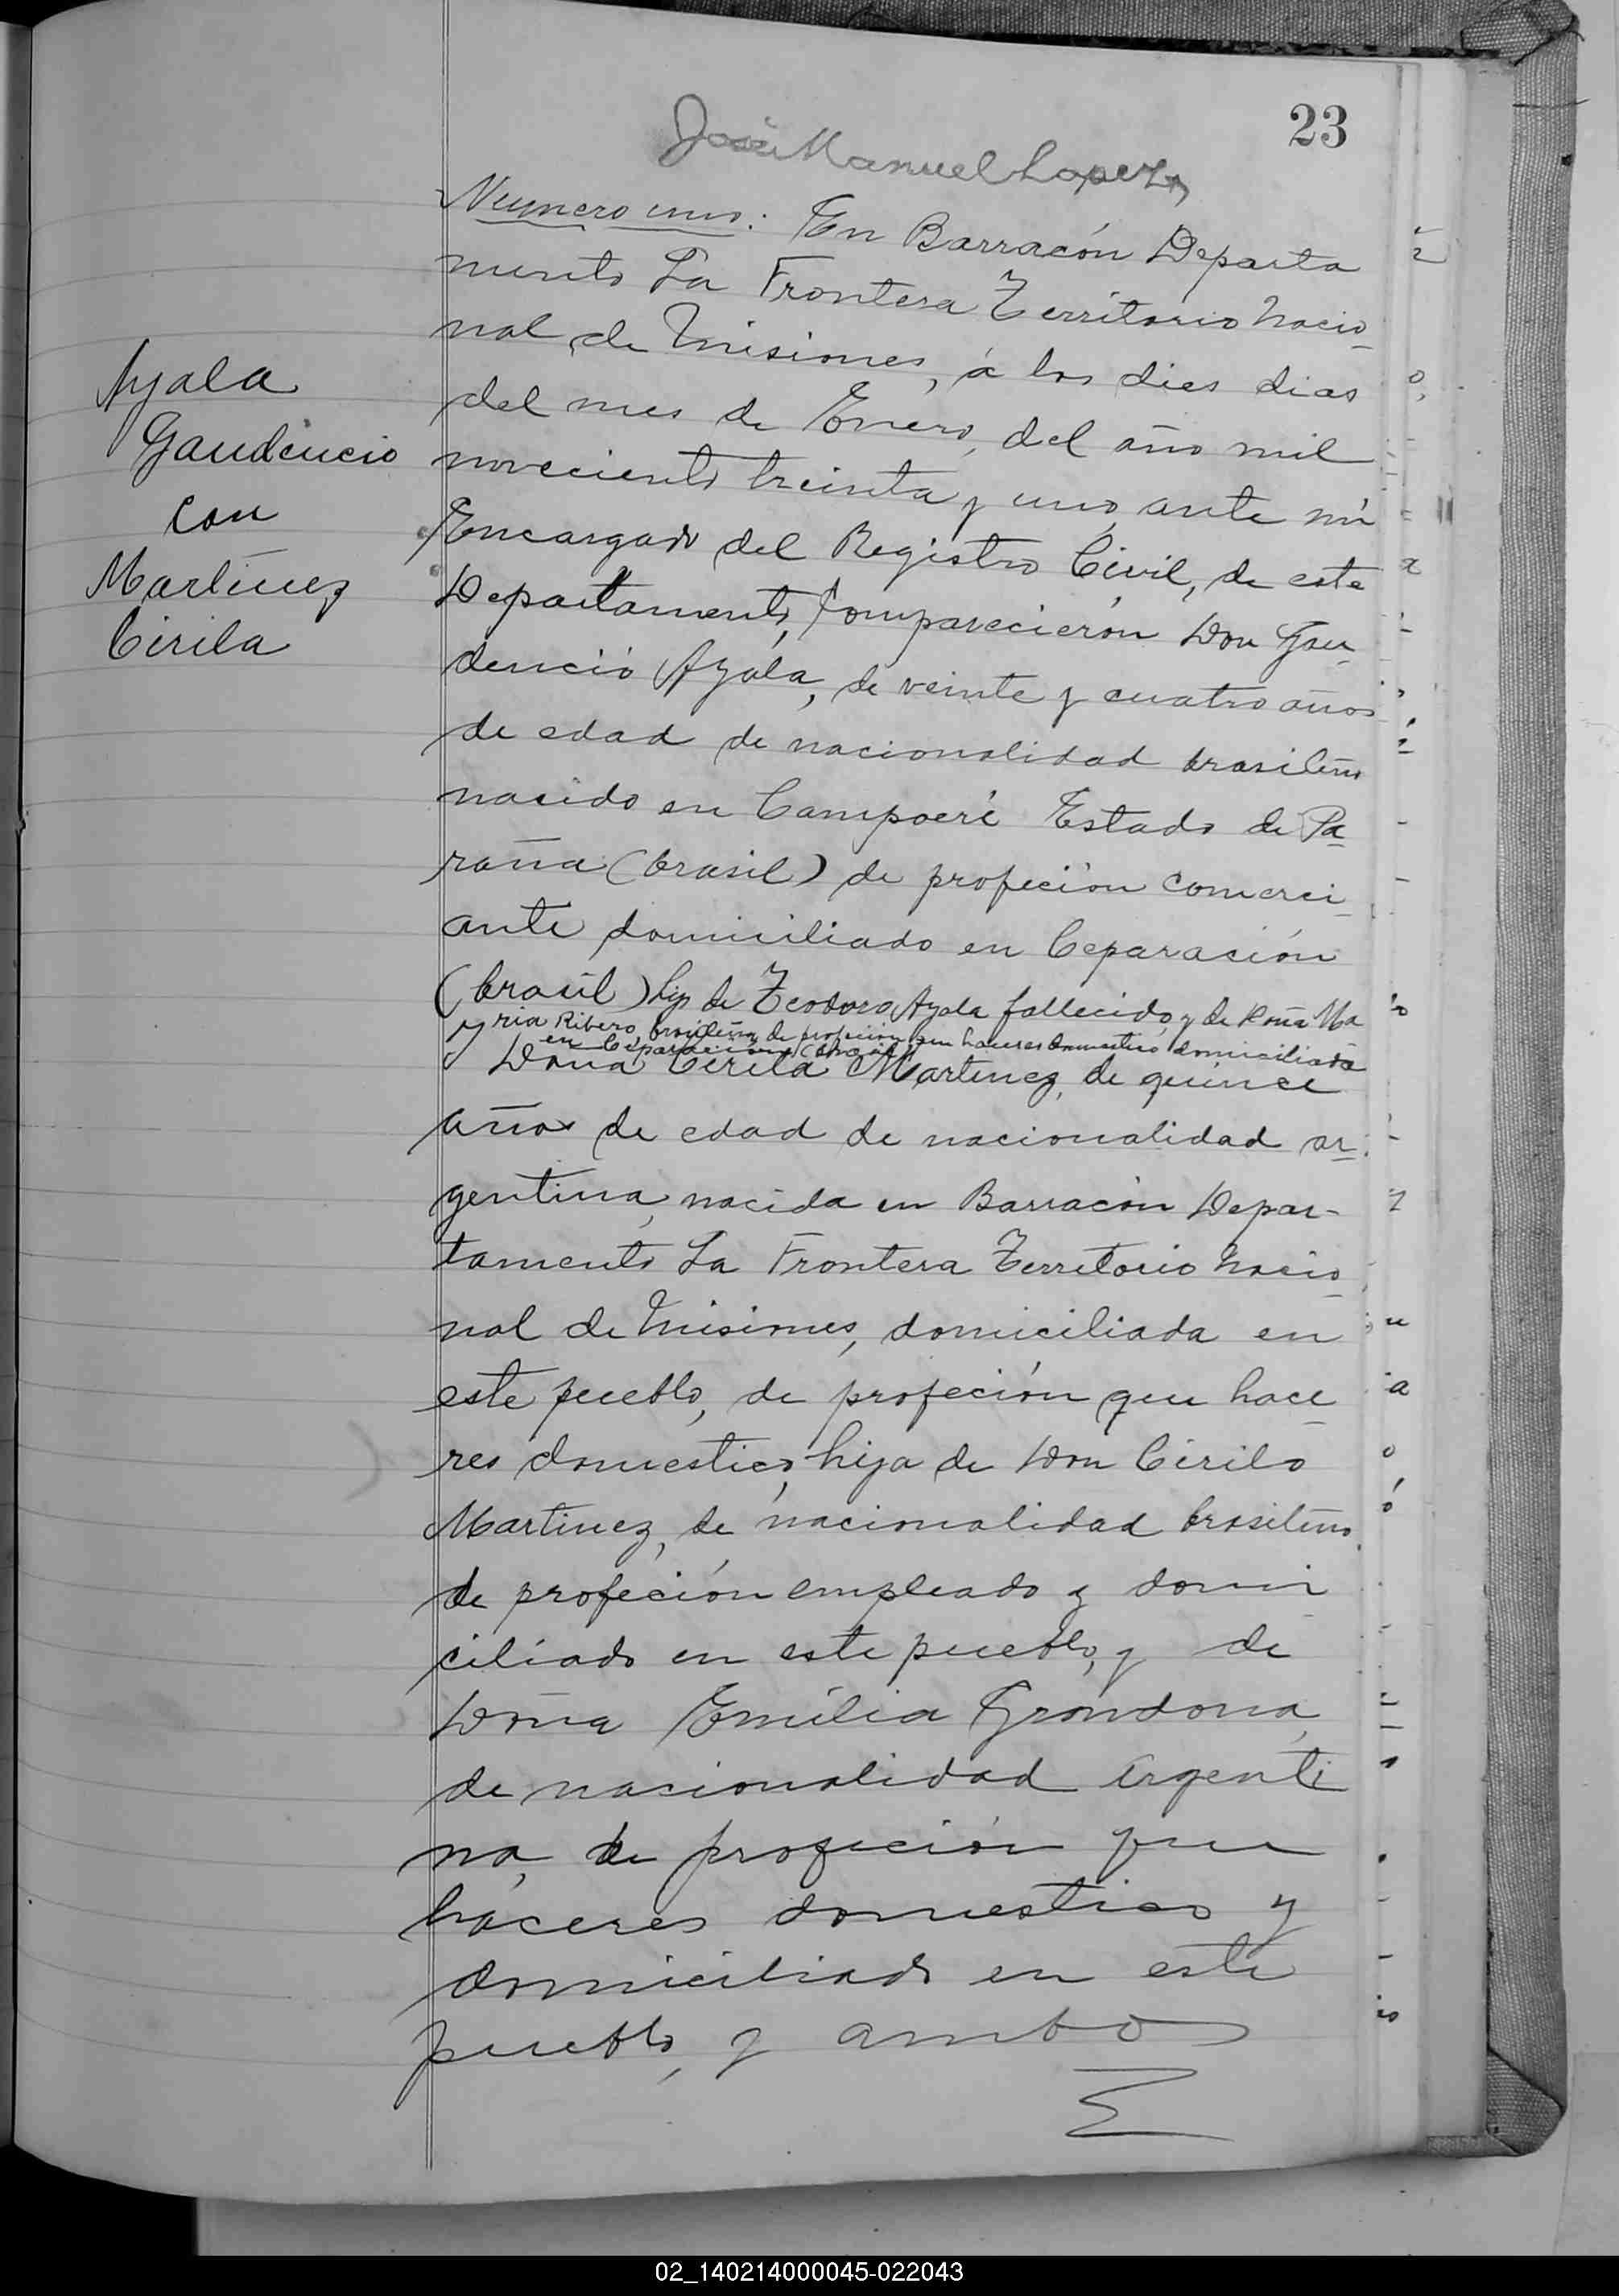 23
José Manuel Lopez
Numero uno: En Barracón Departa
mento La Frontera Territorio Nacio
nal de Misiones, á los dies dias
del mes de Enero, del año mil
noveciento treinta y uno, ante mi
Encargado del Registro Civil, de este
Departamento, Comparecierón Don Gau
dencio Ayala, de veinte y cuatro años
de edad de nacionalidad brasileño
nacido en Campoeré Estado de Pa
raña (brasil) de profeción comerci
ante domiciliado en Ceparación
(brasil) hijo de Teodoro Ayala fallecido, y de Doña Ma
ria Ribero, brasileña, de profeción que haceres domestico domiciliada
en Ceparación (brasil)
y Doña Cirila Martinez, de quince
años de edad de nacionalidad ar
gentina, nacida en Barracón Depar-
tamento La Frontera Territorio Nacio
nal de Misiones, domiciliada en
este pueblo, de profeción que hace
res domestico, hija de Don Cirilo
Martinez, de nacionalidad brasileño
de profeción empleado y domi
ciliado en este pueblo, y de
Doña Emilia Grondona,
de nacionalidad Argenti
na, de profeción que
haceres domestico y
domiciliado en este
pueblo, y ambos
Ayala
Gaudencio
con
Martinez
Cirila
02_140214000045-022043